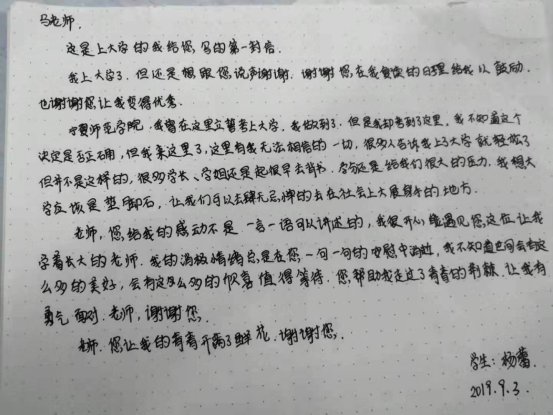 马老师,
这是上大学的我给您,写的第一封信.
我上大学了.但还是想跟您说声谢谢.谢谢您在我复读的日子里给我以鼓励.
也谢谢您让我变得优秀.
宁夏师范学院.我曾在这里立誓考上大学,我做到了.但是我却考到了这里,我不知道这个
决定是否正确,但我来这里了,这里有我无法相信的一切,很多人告诉我上了大学就轻松了
但并不是这样的,很多学长、学姐还是起很早去背书.学习还是给我们很大的压力.我想大
学应该是垫脚石,让我们可以去肆无忌惮的去在社会上大展身手的地方.
老师,您给我的感动不是一言一语可以讲述的,我很开心能遇见您这位让我
学着长大的老师.我的消极情绪总是在您一句一句的安慰中消逝,我不知道世间会有这
么多的美好,会有这么多的惊喜值得等待.您帮助我走过了青春的荆棘,让我有
勇气面对.老师,谢谢您.
老师.您让我的青春开满了鲜花.谢谢您.
学生:杨蕾
2019.9.3.